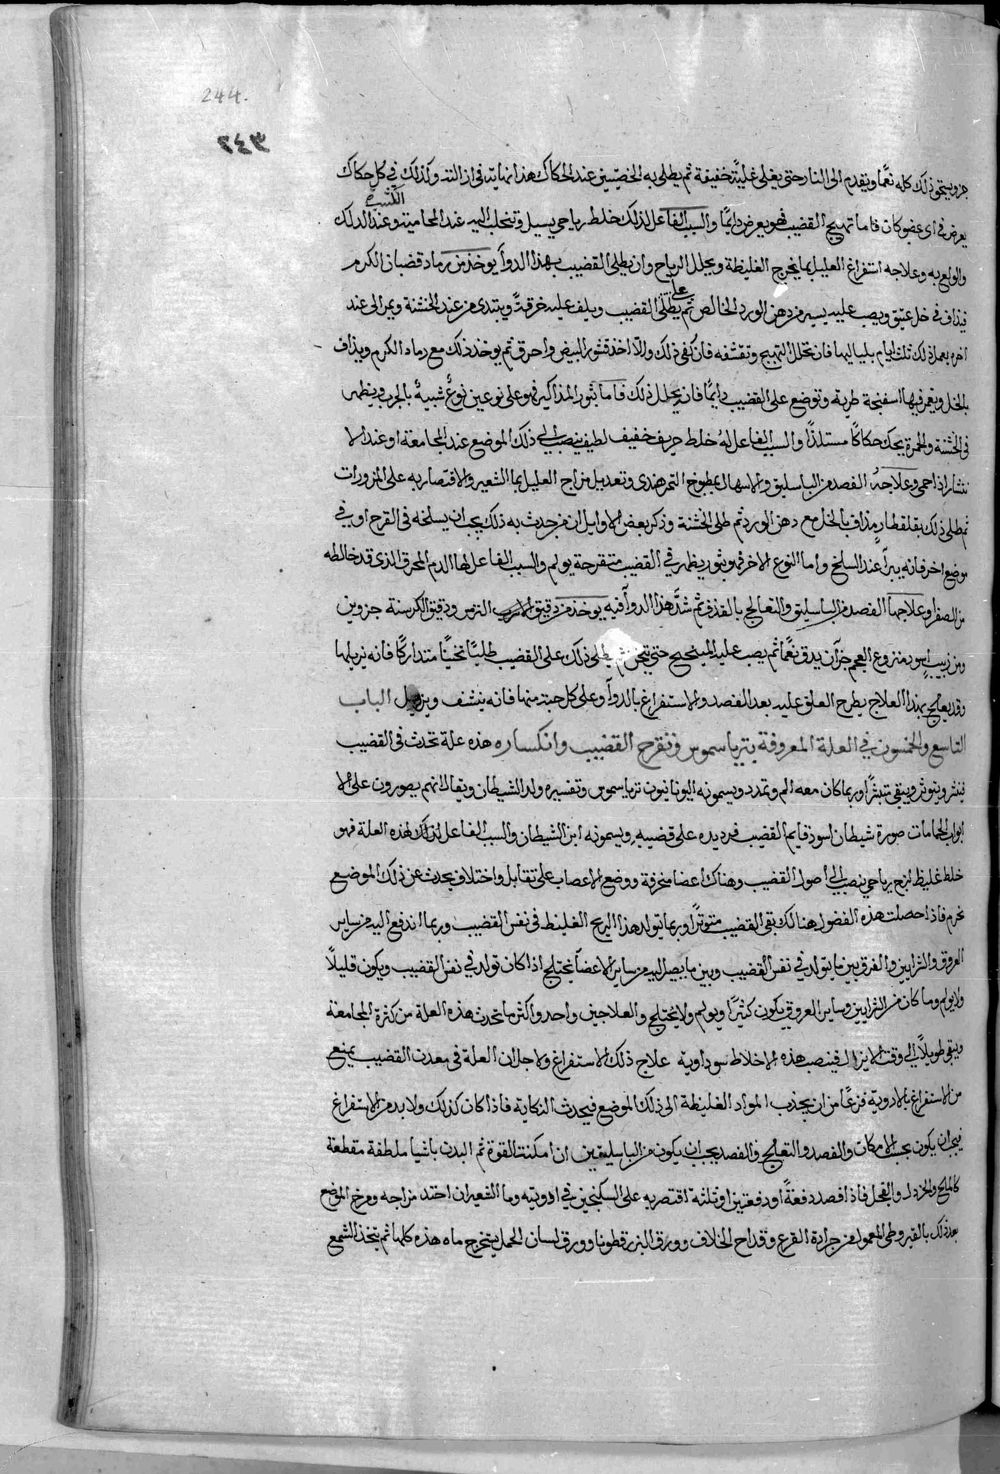 244.
٢٤٣
جزو يتموذلك كله نعما ويقدم الى النار حتى يغلى غلية خفيفة ثم يطلى به الخصيتين عند الحكاك هذا نهاية فى ازالته وكذلك فى كل حكاك
يعرض فى اى عضو كان فاما تهيج القضيب فهو يعرض دايما والسبب الفاعل لذلك خلط رياحى يسيل وتنجلب اليه عند المحامية وعند الدلك
والولع به وعلاجه استفراغ العليل بما يخرج الغليظة ويحلل الرياح وان يطلى القضيب بهذا الدواء يوخذ من رماد قضبان الكرم
فيذاف فى خل عتيق ويصب عليه يسير من دهن الورد الخالص ثم يطلى على القضيب ويلف عليه خرقة ويبتدى من عند الخشنة ويمر الى عند
اخره يعمل ذلك ثلث ايام بلياليها فانه يحلل التهيج وتقشفه فان كفى ذلك والا اخذ قشور البيض واحرق ثم يوخذ ذلك مع رماد الكرم ويذاف
بالخل ويغمر فيها اسفنجة طرية وتوضع على القضيب دايما فانه يحلل ذلك فاما بثور المذاكير فهو على نوعين نوع شبيه بالجرب ويظهر
فى الخشنة والحمرة يحك حكاكا مستلذا والسبب الفاعل له خلط حريف خفيف لطيف ينصب الى ذلك الموضع عند المجامعة او عند الا
نتشار اذا حمى وعلاجه الفصد من الباسليق والاسهال بمطبوخ التمر هندى وتعديل مزاج العليل بما الشعير والاقتصار به على المزورات
ثم يطلى ذلك بقلقطار مذاف بالخل مع دهن الورد ثم طلى الخشنة وذكر بعض الاوايل ان من حدث به ذلك يجب ان يسلخه فى القرح او فى
موضع اخر فانه يبرأ عند السلخ واما النوع الاخر فهو بثور يظهر فى القضيب متقرحة يولم والسبب الفاعل لها الدم المحرق الذى قد خالطه
من الصفرا وعلاجها الفصد من الباسليق والتعالج بالقذف ثم شد هذا الدوا فيه يوخذ من دقيق الترمس ودقيق الكرسنة جزوين
ومن زبيب اسود منزوع العجم جزآن يدق نعما ثم يصب عليه الميبختج حتى يثخن ثم يطلى ذلك على القضيب طليا ثخينا متداركا فانه يزيلها
وقد يعالج بهذا العلاج يطرح العلق عليه بعد الفصد والاستفراغ بالدوآ وعلى كل حبة منها فانه ينشف ويزيل الباب
التاسع والخمسون فى العلة المعروفة بترياسموس وتقرح القضيب وانكساره هذه علة تحدث فى القضيب
فينثر ويتوثر ويبقى متبثرا وربما كان معه الم وتمدد ويسمونه اليونانيون ترياسموس وتفسيره ولد الشيطان ويقال انهم يصورون على الا
ابواب الحمامات صورة شيطان اسود قايم القضيب فيرد يده على قضيبه ويسمونه ابن الشيطان والسبب الفاعل لذلك لهذه العلة فهو
خلط غليظ لزج رياحى ينصب الى اصول القضيب وهناك اعضا مخرفة ووضع الاعصاب على تقابل واختلاف يحدث عن ذلك الموضع
تحزم فاذا حصلت هذه الفضول هنالك بقى القضيب متوترا وربما يتولد هذا الريح الغليظ فى نفس القضيب وربما اندفع اليه من ساير
العروق والشرايين والفرق بين ما يتولد فى نفس القضيب وبين ما يصل اليه من ساير الاعضا يختلج اذا كان تولد فى نفس القضيب ويكون قليلا
ولا يولم وما كان من الشرايين وساير العروق يكون كثيرا ويولم ولا يختلج والعلاجين واحد واكثر ما تحدث هذه العلة من كثرة المجامعة
ويبقى طويلا الى وقت الانزال فينصب هذه الاخلاط سوداوية علاج ذلك الاستفراغ ولاجل ان العلة فى معدن القضيب يمنع
من الاستفراغ بالادوية فزعا من ان يجذب المواد الغليظة الى ذلك الموضع فيحدث النكاية فاذا كان كذلك ولا بد من الاستفراغ
فيجب ان يكون بحسب الامكان والفصد والتعالج والفصد يجب ان يكون من الباسليقين ان امكنت القوة ثم البدن باشيا ملطفة مقطعة
كالملح والخردل والفجل فاذا فصد دفعة او دفعتين او ثلثة اقتصر به على السكنجبين فى ادويته وما الشعير ان احتد مزاجه ومرخ الموضع
بعد ذلك بالقيروطى المعمول من جرادة القرع وقداح الخلاف وورق البزرقطونا وورق لسان الحمل يستخرج ماه هذه كلها ثم يتخذ الشمع